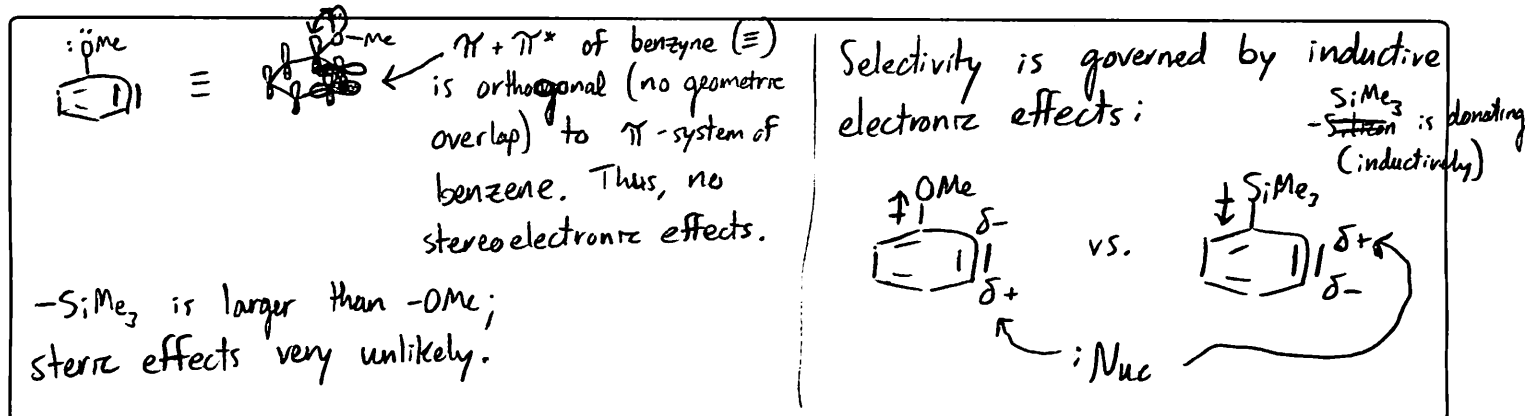 :ÖMe
≡
O-Me
π + π* of benzyne (≡)
is orthogonal (no geometric
overlap) to π-system of
benzene. Thus, no
stereoelectronic effects.
-SiMe₃ is larger than -OMe;
steric effects very unlikely.
Selectivity is governed by inductive
electronic effects:
-SiMe₃ is donating
(inductively)
OMe
δ-
δ+
vs.
SiMe₃
δ+
δ-
:Nuc